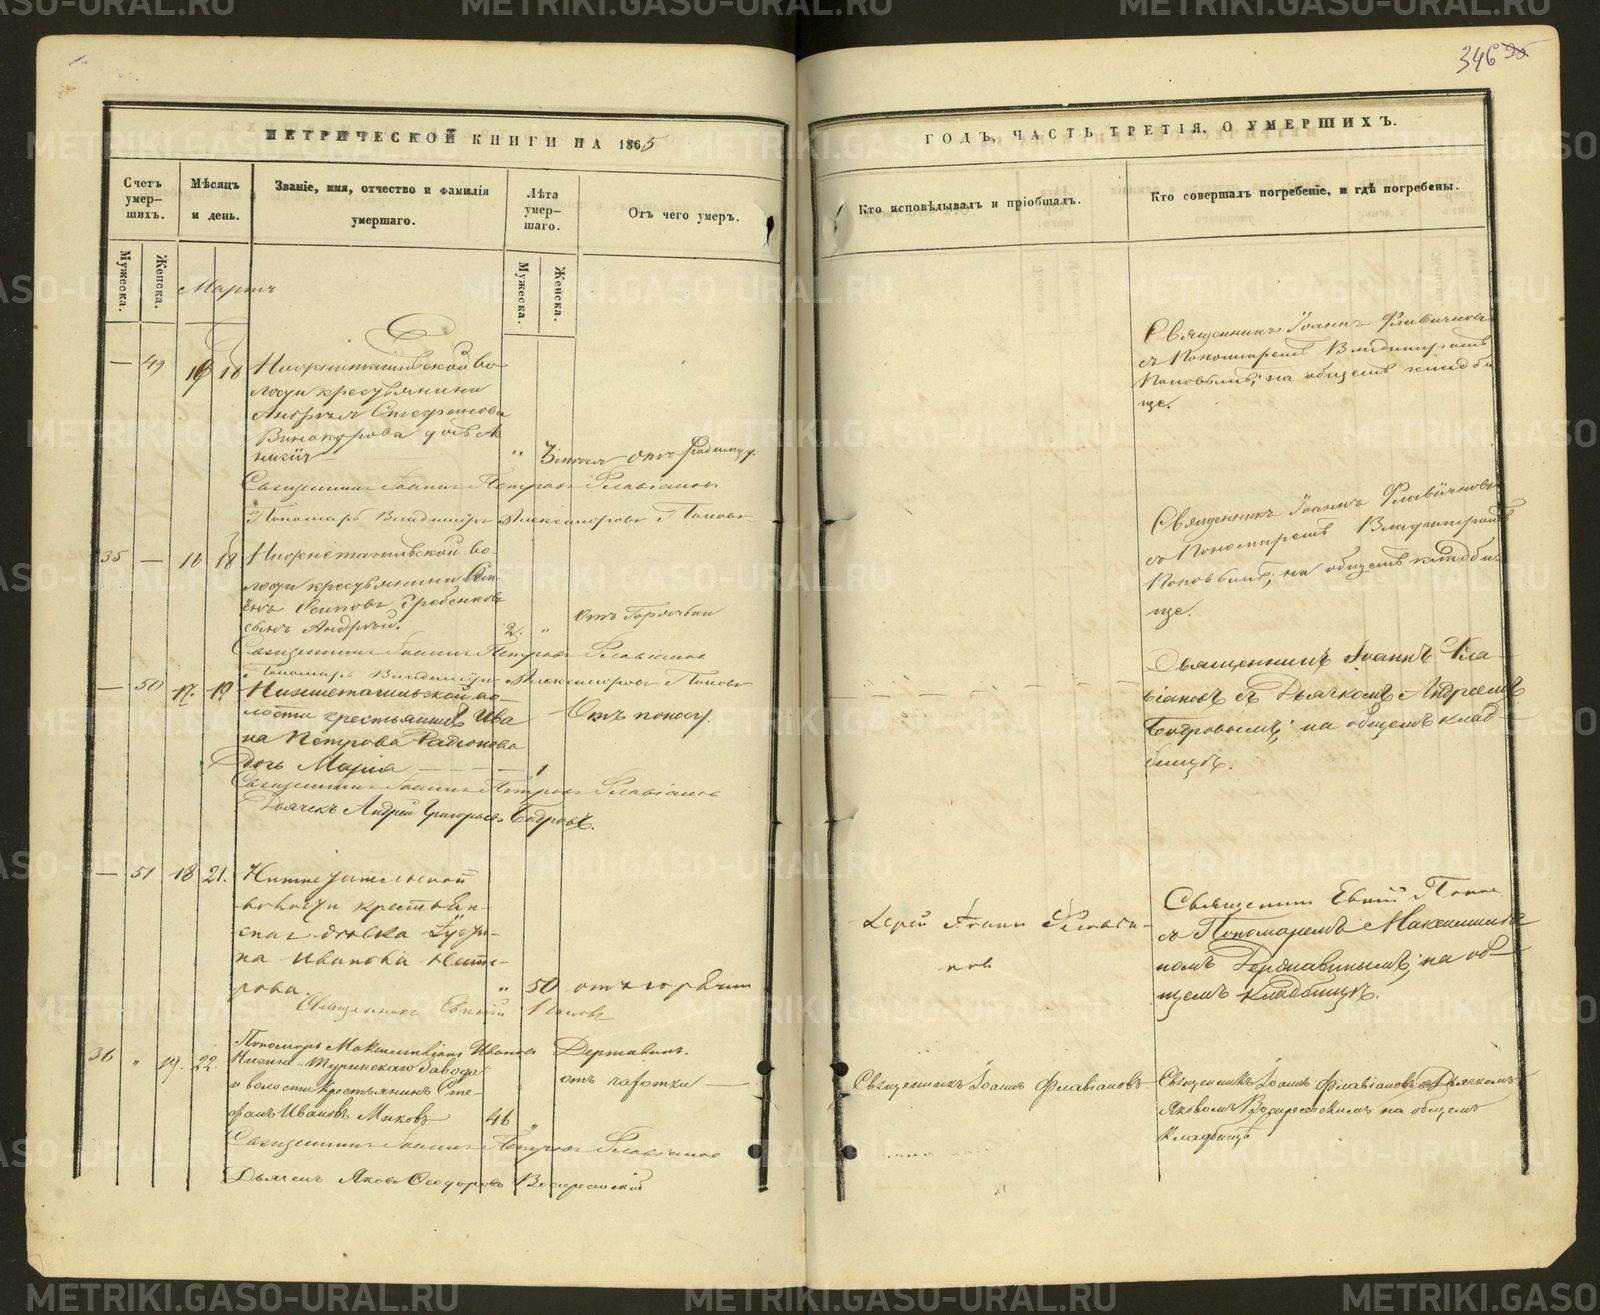 346
МЕТРИЧЕСКОЙ КНИГИ НА 1865
ГОДЪ, ЧАСТЬ ТРЕТІЯ, О УМЕРШИХЪ.
Счетъ умер-шихъ.
Мѣсяцъ и день.
Званіе, имя, отчество и фамилія умершаго.
Лѣта умер-шаго.
Отъ чего умеръ.
Кто исповѣдывалъ и пріобщалъ.
Кто совершалъ погребеніе, и гдѣ погребены.
Мужеска.
Женска.
Мужеска.
Женска.
Мартъ
— 49 16 18
волости крестьянина
Андрея Стефанова
Винокурова дочь
Священникъ Іоаннъ Петровъ Флавіановъ
Пономарь Владиміръ Александровъ Поповъ
Священникъ Іоаннъ Флавіановъ
съ Пономаремъ Владиміромъ
Поповымъ; на общемъ кладби
ще.
35 — 16 18
Нижнетагильской во-
лости крестьянина
Осиповъ Гребенковъ
сынъ Андрей.
2. „ отъ Горячки
Священникъ Іоаннъ Петровъ Флавіановъ
Пономарь Владиміръ Александровъ Поповъ
Священникъ Іоаннъ Флавіановъ
съ Пономаремъ Владиміромъ
Поповымъ; на общемъ кладби
ще.
— 50 17. 19
Нижнетагильской во-
лости крестьянина Ива
на Петрова Радіонова
Дочь Марія — 1
Отъ поносу.
Священникъ Іоаннъ Петровъ Флавіановъ
Дьячекъ Андрей Григорьевъ Бодровъ.
Священникъ Іоаннъ Фла-
віановъ съ Дьячкомъ Андреемъ
Бодровымъ; на общемъ клад-
бищѣ.
— 51 18 21.
волости крестьян-
ская
на Иванова
рова. „ 50 отъ горячки
Священникъ Евгеній Поповъ
Пономарь Максимиліанъ Ивановъ Державинъ.
Іерей Іоаннъ Флавіа-
новъ
Священникъ Евгеній Попов
съ Пономаремъ Максимилиа
номъ Державинымъ; на об-
щемъ кладбищѣ.
36 „ 19. 22.
Нижне-Туринскаго Завода
и волости Крестьянинъ Сте-
фанъ Ивановъ Маховъ 46 „
отъ чахотки —
Священникъ Іоаннъ Петровъ Флавіановъ
Дьячекъ Яковъ Ѳеодоровъ Воскресенскій
Священникъ Іоаннъ Флавіановъ
Священникъ Іоаннъ Флавіановъ съ Дьячкомъ
Яковомъ Воскресенскимъ на общемъ
кладбищѣ
METRIKI.GASO-URAL.RU